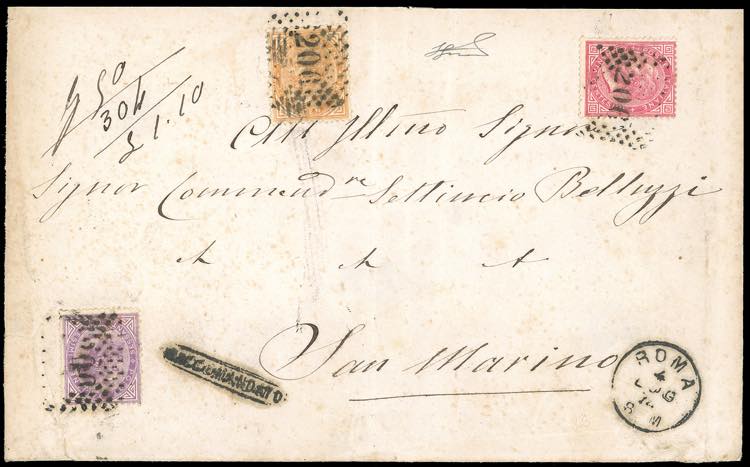 g 50
304
£ 1.10
200
200
All Illmo Signor
Signor Commendre Settimio Belluzzi
San Marino
RACCOMANDATO
ROMA
4
LUG
8 M